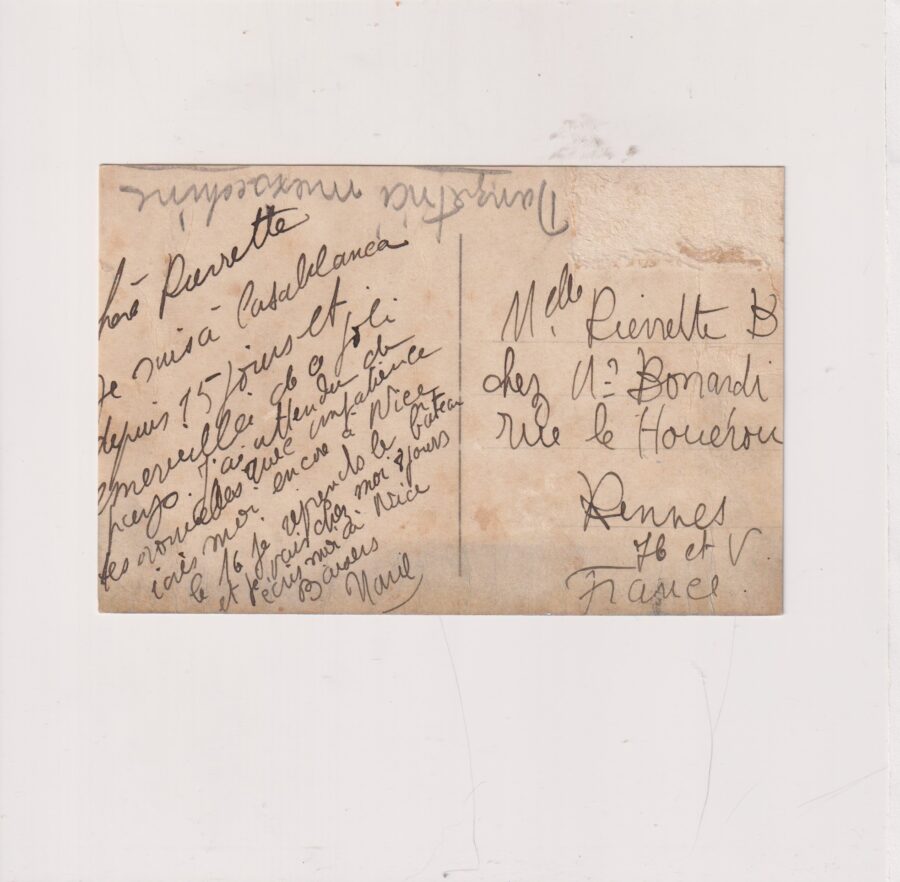 Pierrette
Je suis à Casablanca
depuis 15 jours et
émerveillé de ce joli
pays. J'ai attendu de
tes nouvelles avec impatience
écris moi encore à Nice
le 16 je reprends le bateau
et je vais chez moi 8 jours
écris moi à Nice
Baisers
Melle Pierrette B
chez Bonardi
rue le Houérou
Rennes
et V
France